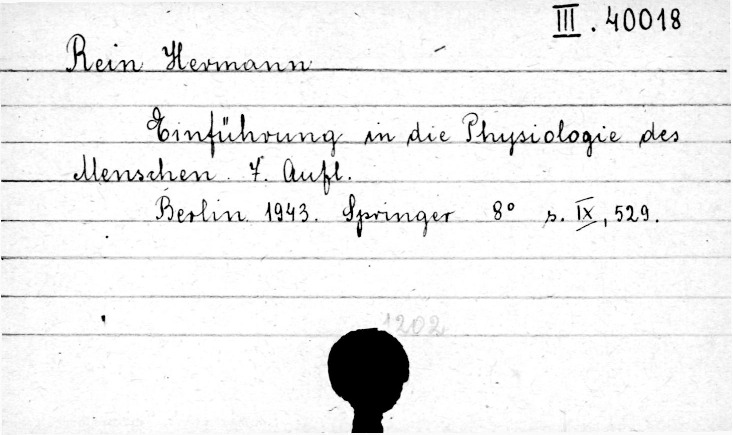 III. 40018
Rein Hermann
Einführung in die Physiologie des
Menschen. 7. Aufl.
Berlin 1943. Springer 8° s. IX, 529.
1202